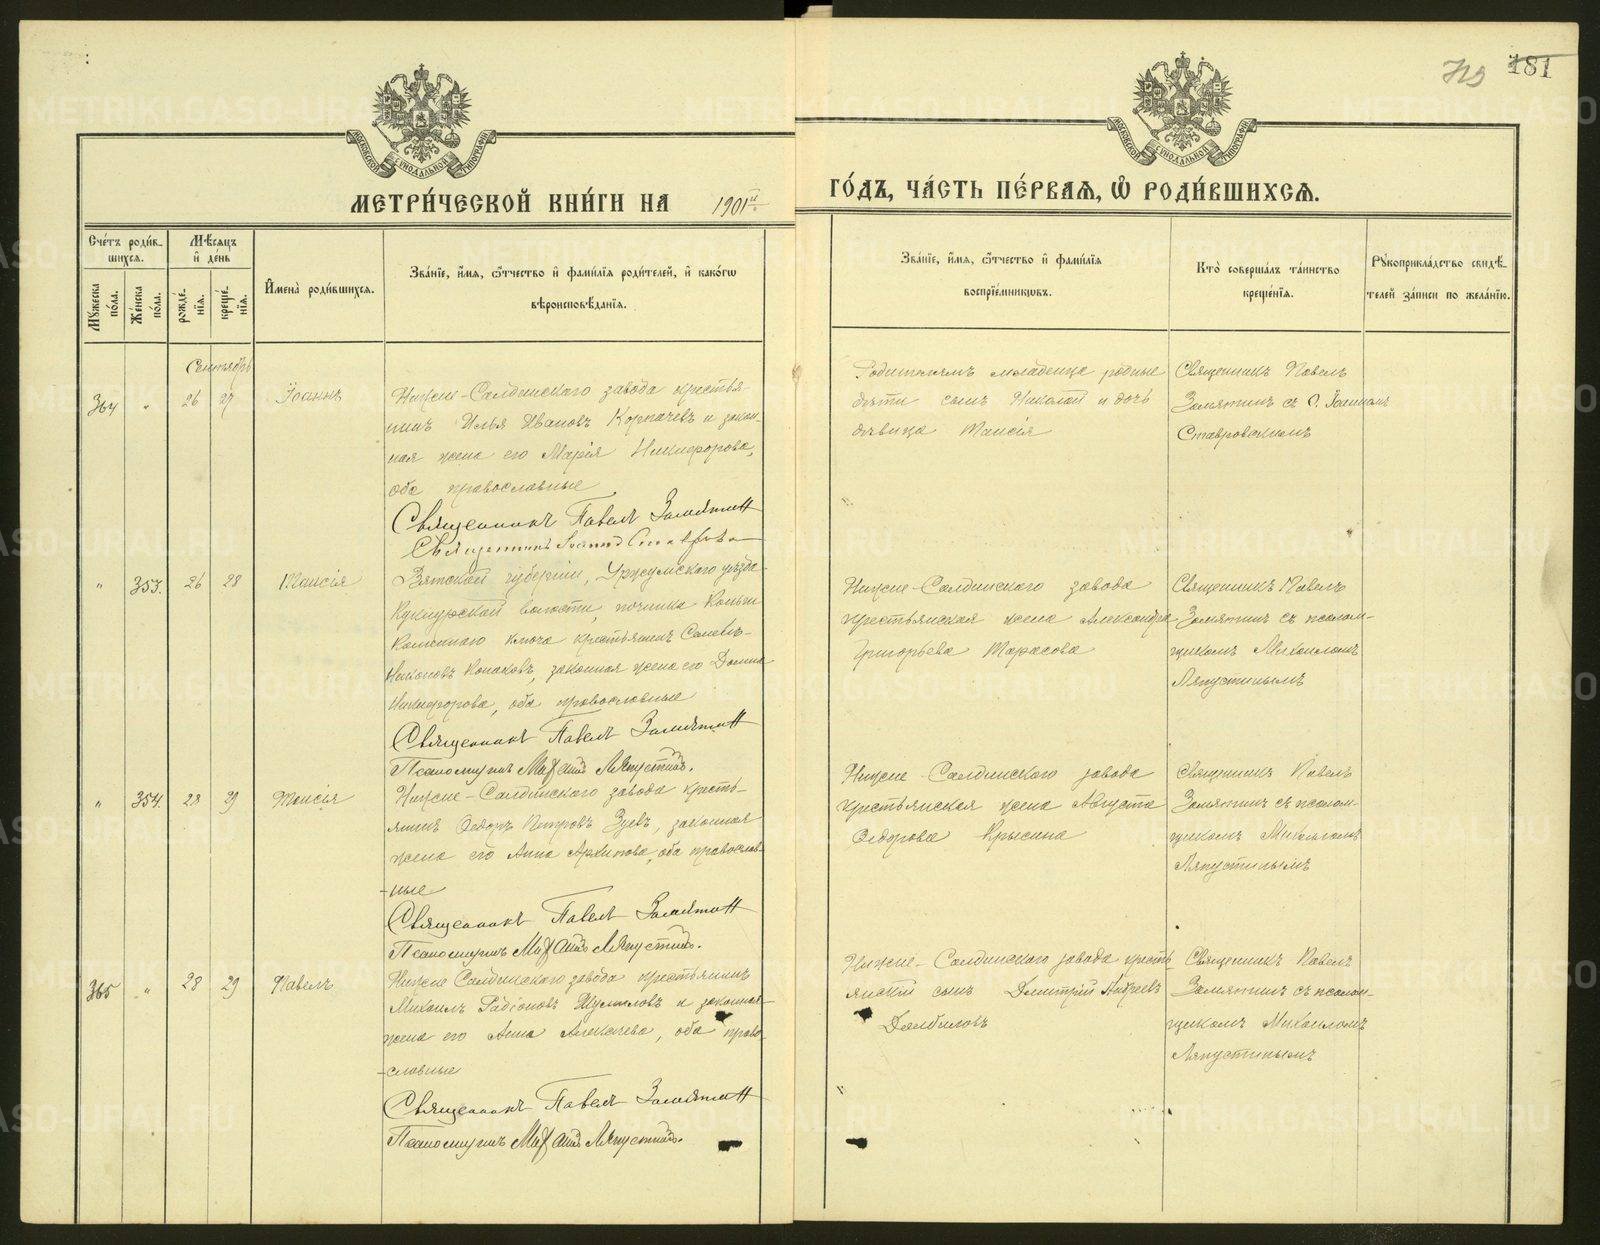 719 181
МОСКОВСКОЙ СѴНОДАЛЬНОЙ ТИПОГРАФІИ
МОСКОВСКОЙ СѴНОДАЛЬНОЙ ТИПОГРАФІИ
МЕТРИ́ЧЕСКОЙ КНИ́ГИ НА 1901й ГО́ДЪ, ЧА́СТЬ ПЕ́РВАѦ, Ѽ РОДИ́ВШИХСѦ.
Сче́тъ роди́в-
шихсѧ.
Мѣ́сѧцъ
и҆ де́нь
Мꙋ́жеска по́ла.
Же́нска по́ла.
рожде́нїѧ.
креще́нїѧ.
И҆мена̀ роди́вшихсѧ.
Зва́нїе, и҆́мѧ, ѻ҆́тчество и҆ фами́лїѧ роди́телей, и҆ како́гѡ
вѣроисповѣ́данїѧ.
Зва́нїе, и҆́мѧ, ѻ҆́тчество и҆ фами́лїѧ
воспрїе́мникѡвъ.
Кто̀ соверша́лъ та́инство
креще́нїѧ.
Рꙋкоприкла́дство свидѣ́-
телей за́писи по жела́нїю.
Сентябрь
364 " 26 27 Іоаннъ
Нижне-Салдинскаго завода крестья-
нинъ Илья Ивановъ Корпачевъ и закон-
ная жена его Марія Никифорова,
оба православные
Священникъ Павелъ Замятин
Священникъ Іоаннъ Ставров
Родителямъ младенца родные
дѣти сынъ Николай и дочь
дѣвица Таисія
Священникъ Павелъ
Замятинъ с о. Іоанномъ
Ставровскимъ
" 353. 26 28 Таисія
Вятской губерніи, Уржумскаго уѣзда
волости, починка
Каменнаго ключа крестьянинъ
Никоновъ Конаковъ, законная жена его Домна
Никифорова, оба православные
Священникъ Павелъ Замятин
Псаломщикъ Михаилъ Ляпустинъ.
Нижне-Салдинскаго завода
крестьянская жена Александра
Григорьева Тарасова
Священникъ Павелъ
Замятинъ съ псалом-
щикомъ Михаиломъ
Ляпустинымъ
" 354. 28 29 Таисія
Нижне-Салдинскаго завода кресть-
янинъ Ѳедоръ Петровъ Зуевъ, законная
жена его Анна Архипова, оба православ-
-ные
Священникъ Павелъ Замятин
Псаломщикъ Михаилъ Ляпустинъ.
Нижне-Салдинскаго завода
крестьянская жена Августа
Ѳедорова Крысина
Священникъ Павелъ
Замятинъ съ псалом-
щикомъ Михаиломъ
Ляпустинымъ
365 " 28 29 Павелъ
Нижне Салдинскаго завода крестьянинъ
Михаилъ Радіоновъ и законная
жена его Анна Алексѣева, оба право-
-славные
Священникъ Павелъ Замятин
Псаломщикъ Михаилъ Ляпустинъ.
Нижне-Салдинскаго завода кресть
янскій сынъ Дмитрій Андреевъ
Долбиловъ
Священникъ Павелъ
Замятинъ съ псалом-
щикомъ Михаиломъ
Ляпустинымъ
METRIKI.GASO-URAL.RU